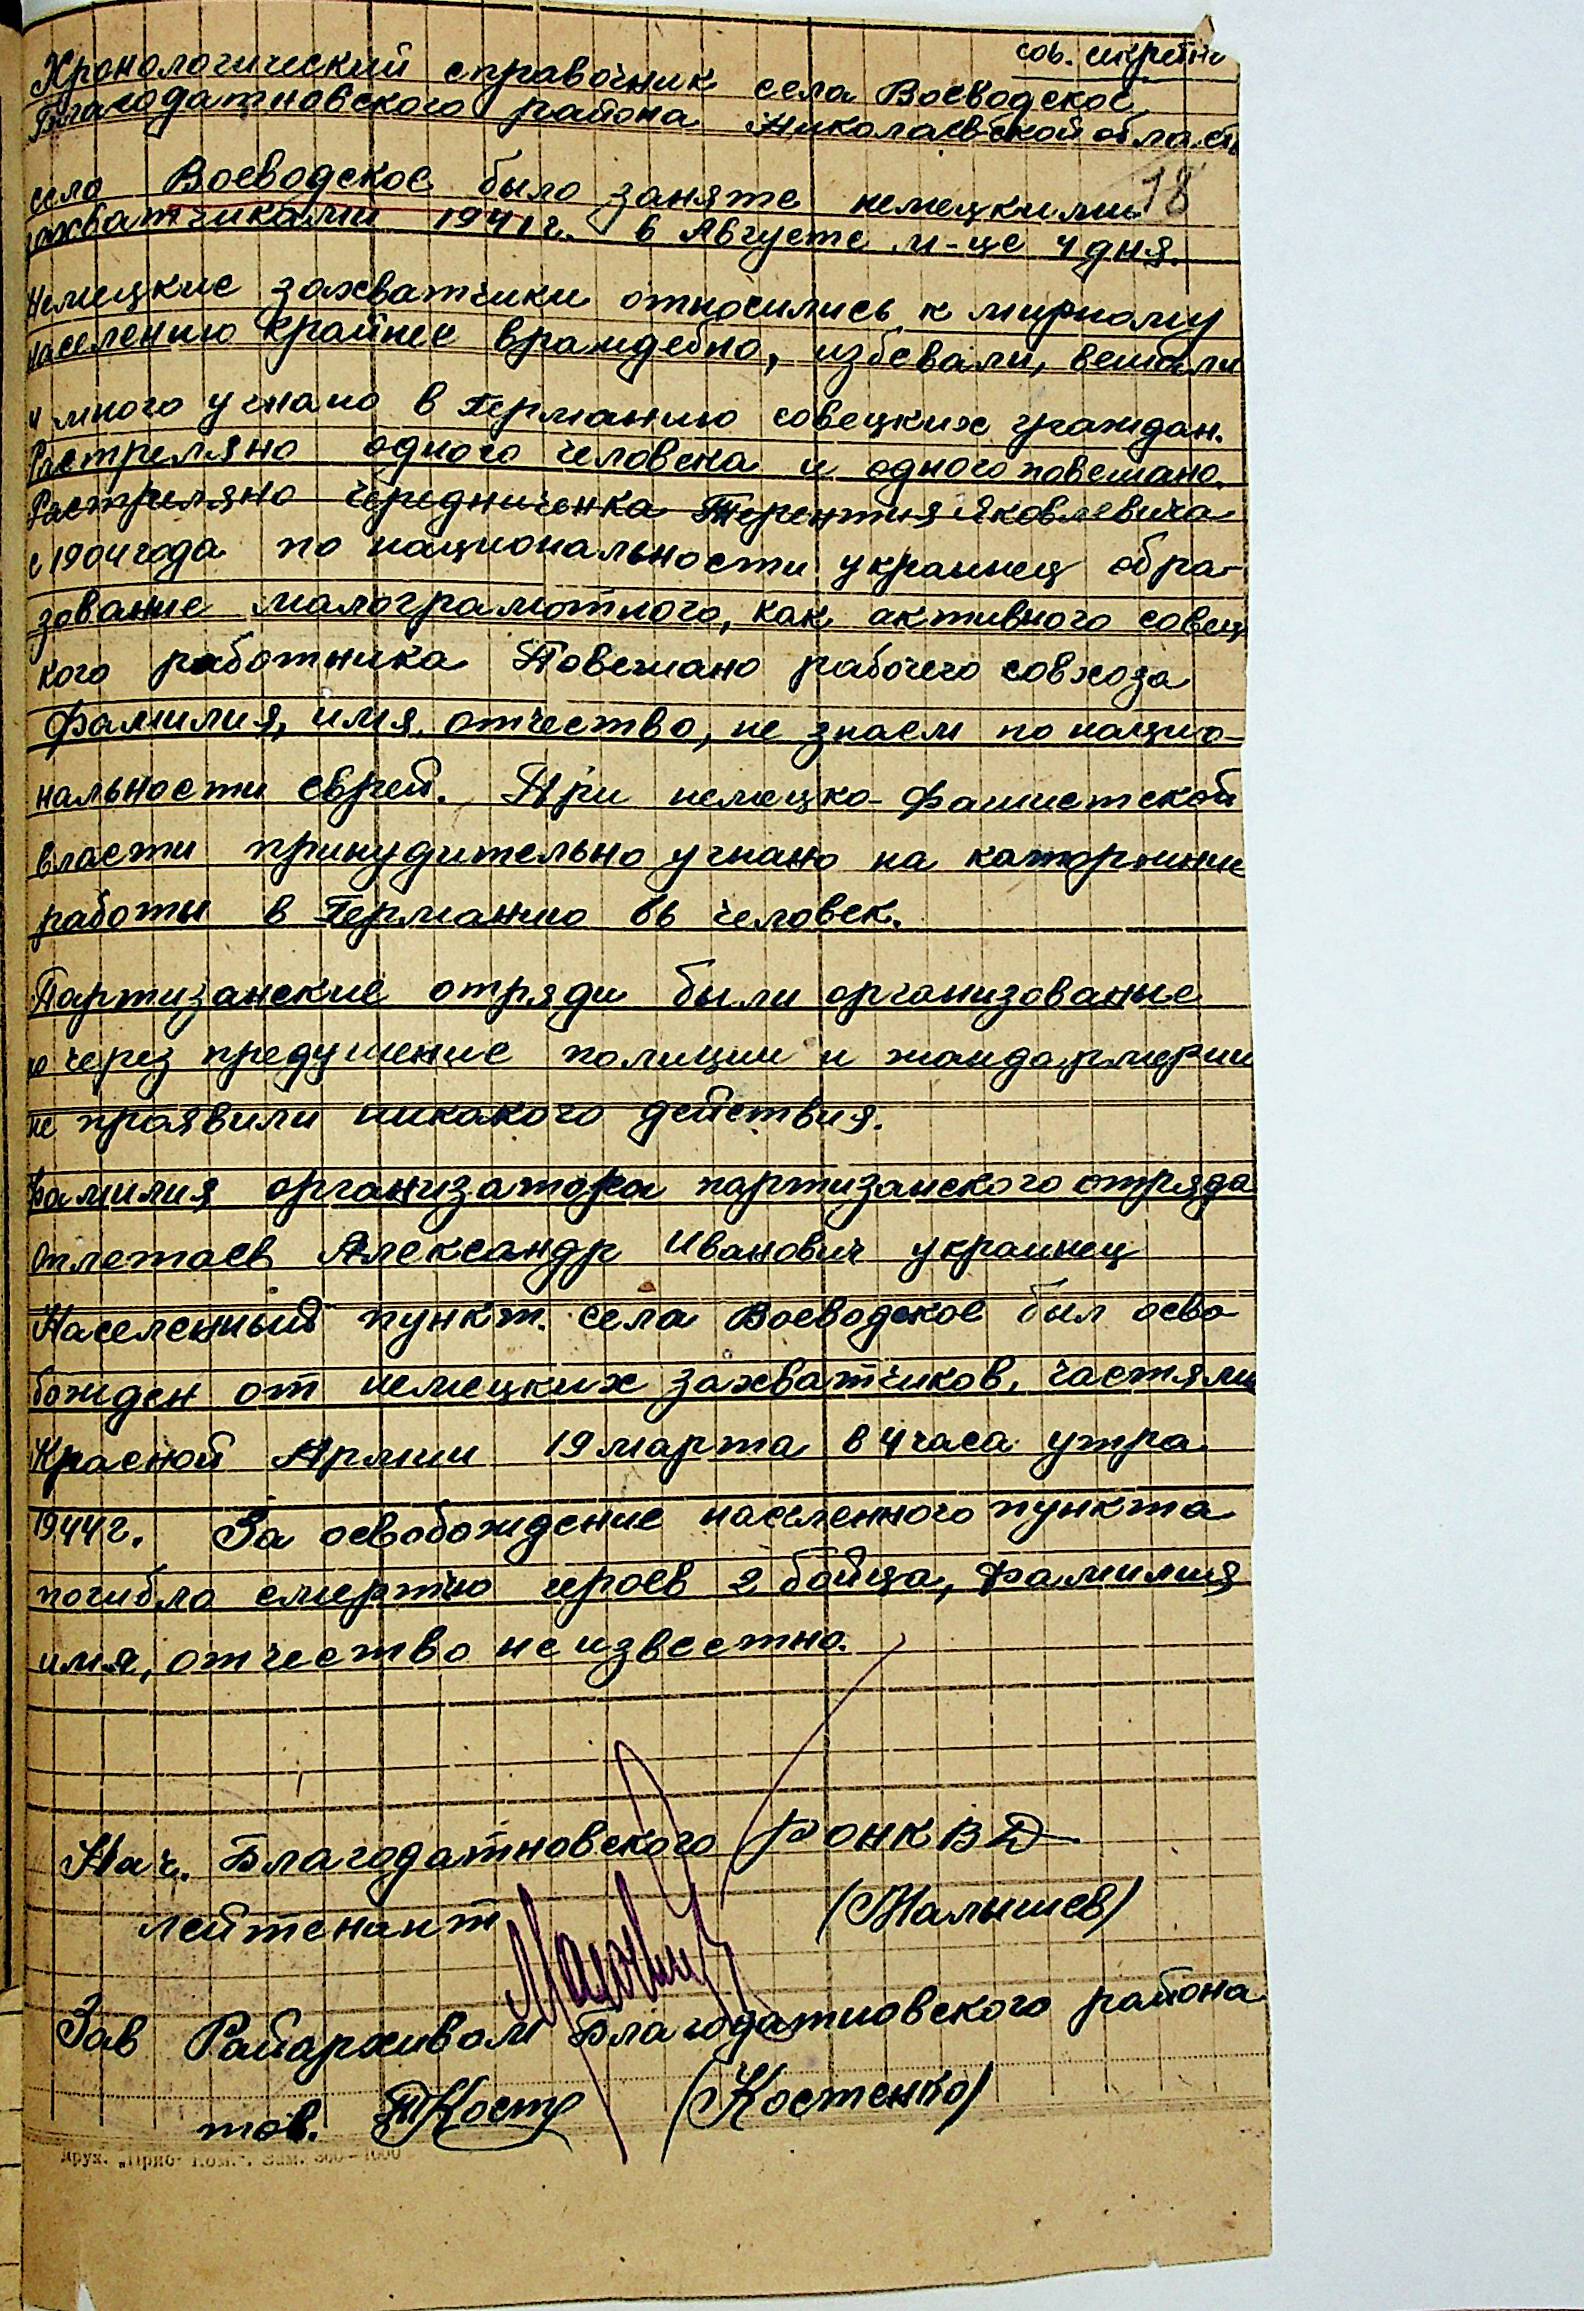 сов. секретно
Хронологический справочник села Воеводское,
Благодатновского района Николаевской област
18
село Воеводское было заняте немецкими
захватчиками 1941 г. в Августе м-це 4 дня.
Немецкие захватчики относились к мирному
населению крайнее враждебно, избевали, вешали
и много угнано в Германию совецких граждан.
Растреляно одного человека и одного повешано.
Растреляно Чередниченка Терентия Яковлевича
с 1904 года по национальности украинец обра-
зование малограмотного, как активного совец
кого работника Повешано рабочего совхоза
фамилия, имя, отчество, не знаем по нацио-
нальности еврей. При немецко-фашистской
власти принудительно угнано на каторжние
работы в Германию 66 человек.
Партизанские отряди были организованые
но через предушение полиции и жандармерии
не проявили никакого действия.
Фамилия организатора партизанского отряда
Отлетаев Александр Иванович украинец
Населенный пункт. села Воеводское был осво
божден от немецких захватчиков, частями
Красной Армии 19 марта в 4 часа утра
1944 г. За освобождение населенного пункта
погибло смертю героев 2 бойца, фамилия
имя, отчество не известно.
Нач. Благодатновского РОНКВД
лейтенант (Малышев)
Зав Райархивом Благодатновского района
тов. (Костенко)